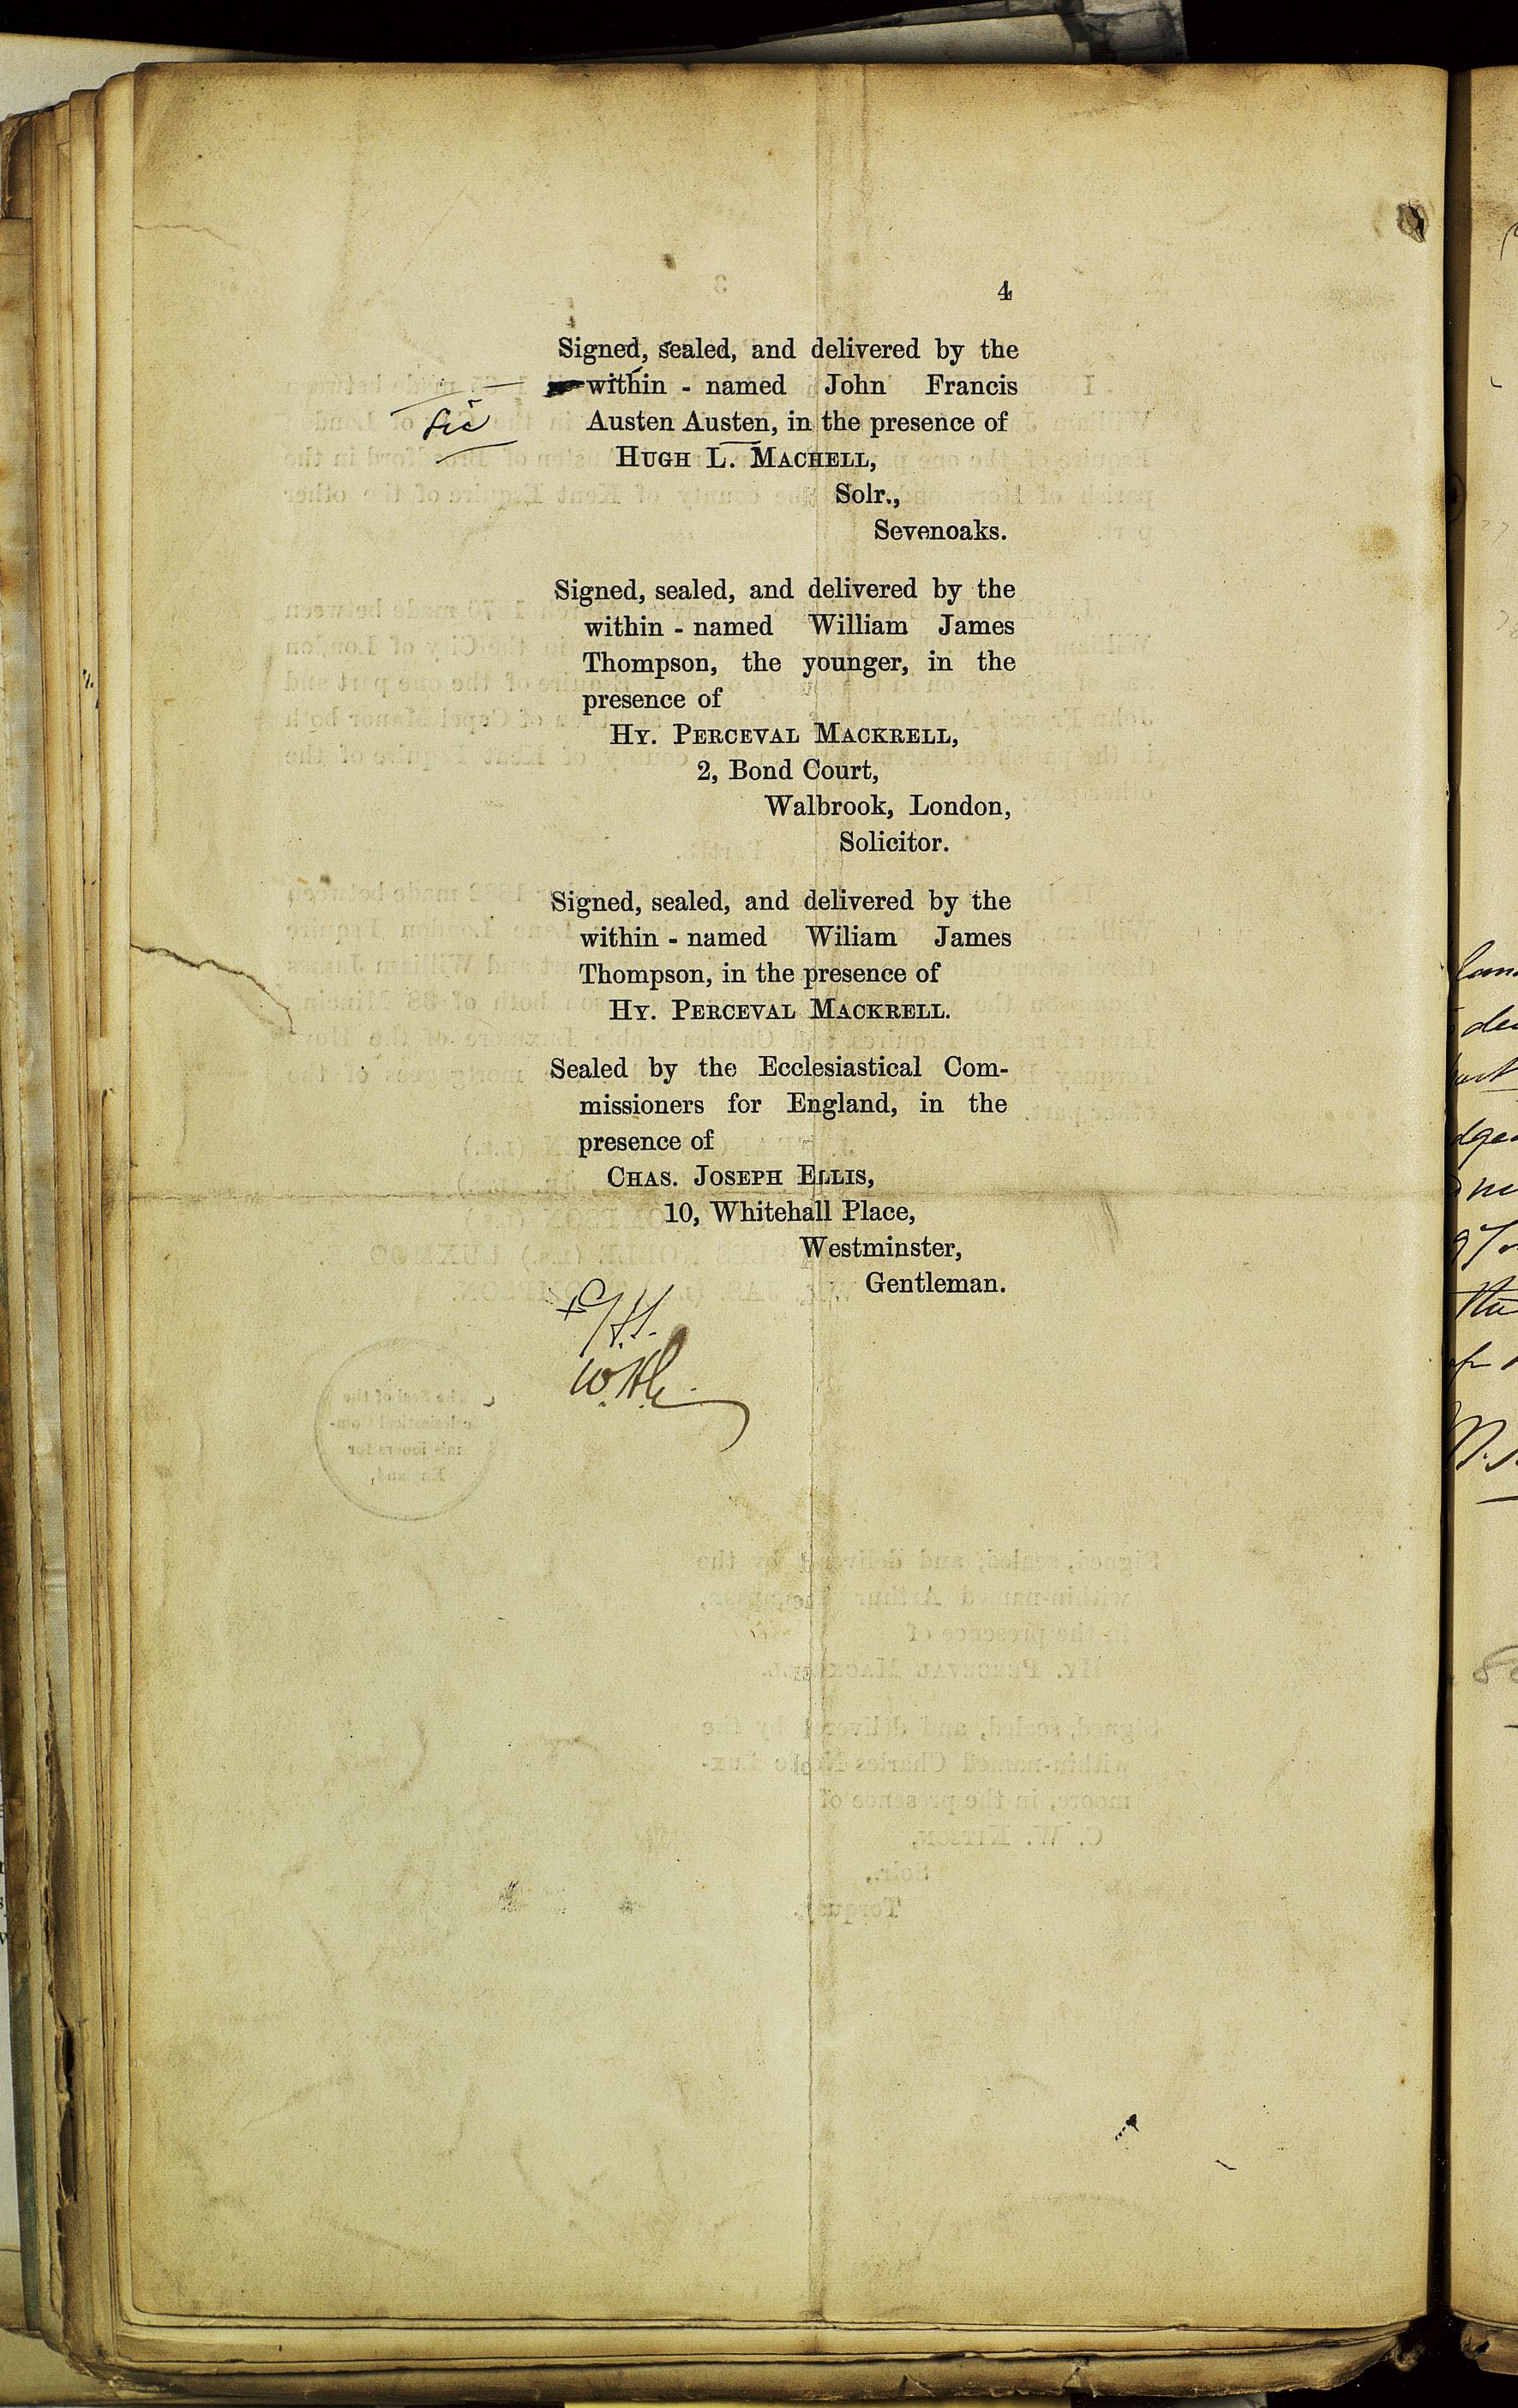 4
Signed, sealed, and delivered by the
within - named John Francis
Sic
Austen Austen, in the presence of
HUGH L. MACHELL,
Solr.,
Sevenoaks.
Signed, sealed, and delivered by the
within - named William James
Thompson, the younger, in the
presence of
HY. PERCEVAL MACKRELL,
2, Bond Court,
Walbrook, London,
Solicitor.
Signed, sealed, and delivered by the
within - named Wiliam James
Thompson, in the presence of
HY. PERCEVAL MACKRELL.
Sealed by the Ecclesiastical Com-
missioners for England, in the
presence of
CHAS. JOSEPH ELLIS,
10, Whitehall Place,
Westminster,
Gentleman.